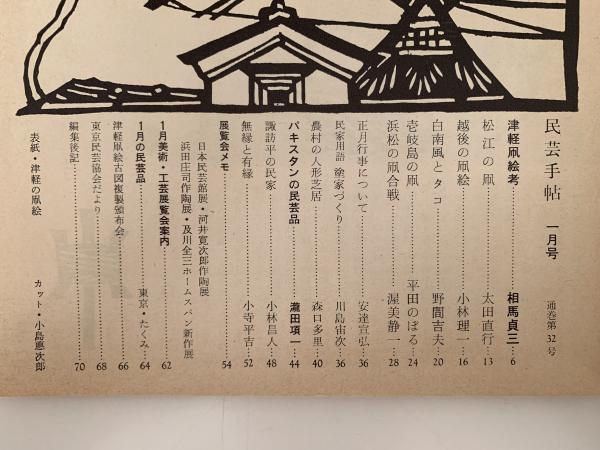 民芸手帖 一月号 通巻第32号
津軽凧絵考……相馬貞三…6
松江の凧……太田直行…13
越後の凧絵……小林理一…16
白南風とタコ……野間吉夫…20
壱岐島の凧……平田のぼる…24
浜松の凧合戦……渥美静一…28
正月行事について……安達宣弘…36
民家用語 塗家づくり……川島宙次…36
農村の人形芝居……森口多里…40
パキスタンの民芸品……瀧田項一…44
諏訪平の民家……小林昌人…48
無縁と有縁……小寺平吉…52
展覧会メモ……54
日本民芸館展・河井寛次郎作陶展
浜田庄司作陶展・及川全三ホームスパン新作展
1月美術・工芸展覧会案内……62
1月の民芸品……東京・たくみ…64
津軽凧絵古図複製頒布会……66
東京民芸協会だより……68
編集後記……70
表紙・津軽の凧絵
カット・小島悳次郎